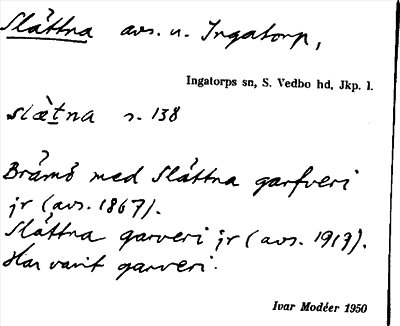 Slåttna avs. u. Ingatorp,
Ingatorps sn, S. Vedbo hd, Jkp. l.
slæ̀tna s. 138
Bråmå med Slåttna garfveri
jr (avs. 1867).
Slåttna garveri jr (avs. 1919).
Har varit garveri.
Ivar Modéer 1950